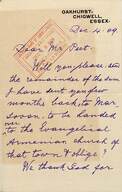 OAKHURST,
CHIGWELL,
ESSEX.
Dec 4. 09.
Dear Mr Peet.
Will you please send
the remainder of the sum
I have sent you few
months back, to Mar
sovan, to be handed
over to the Evangelical
Armenian church of
that town, & oblige!
We thank God for